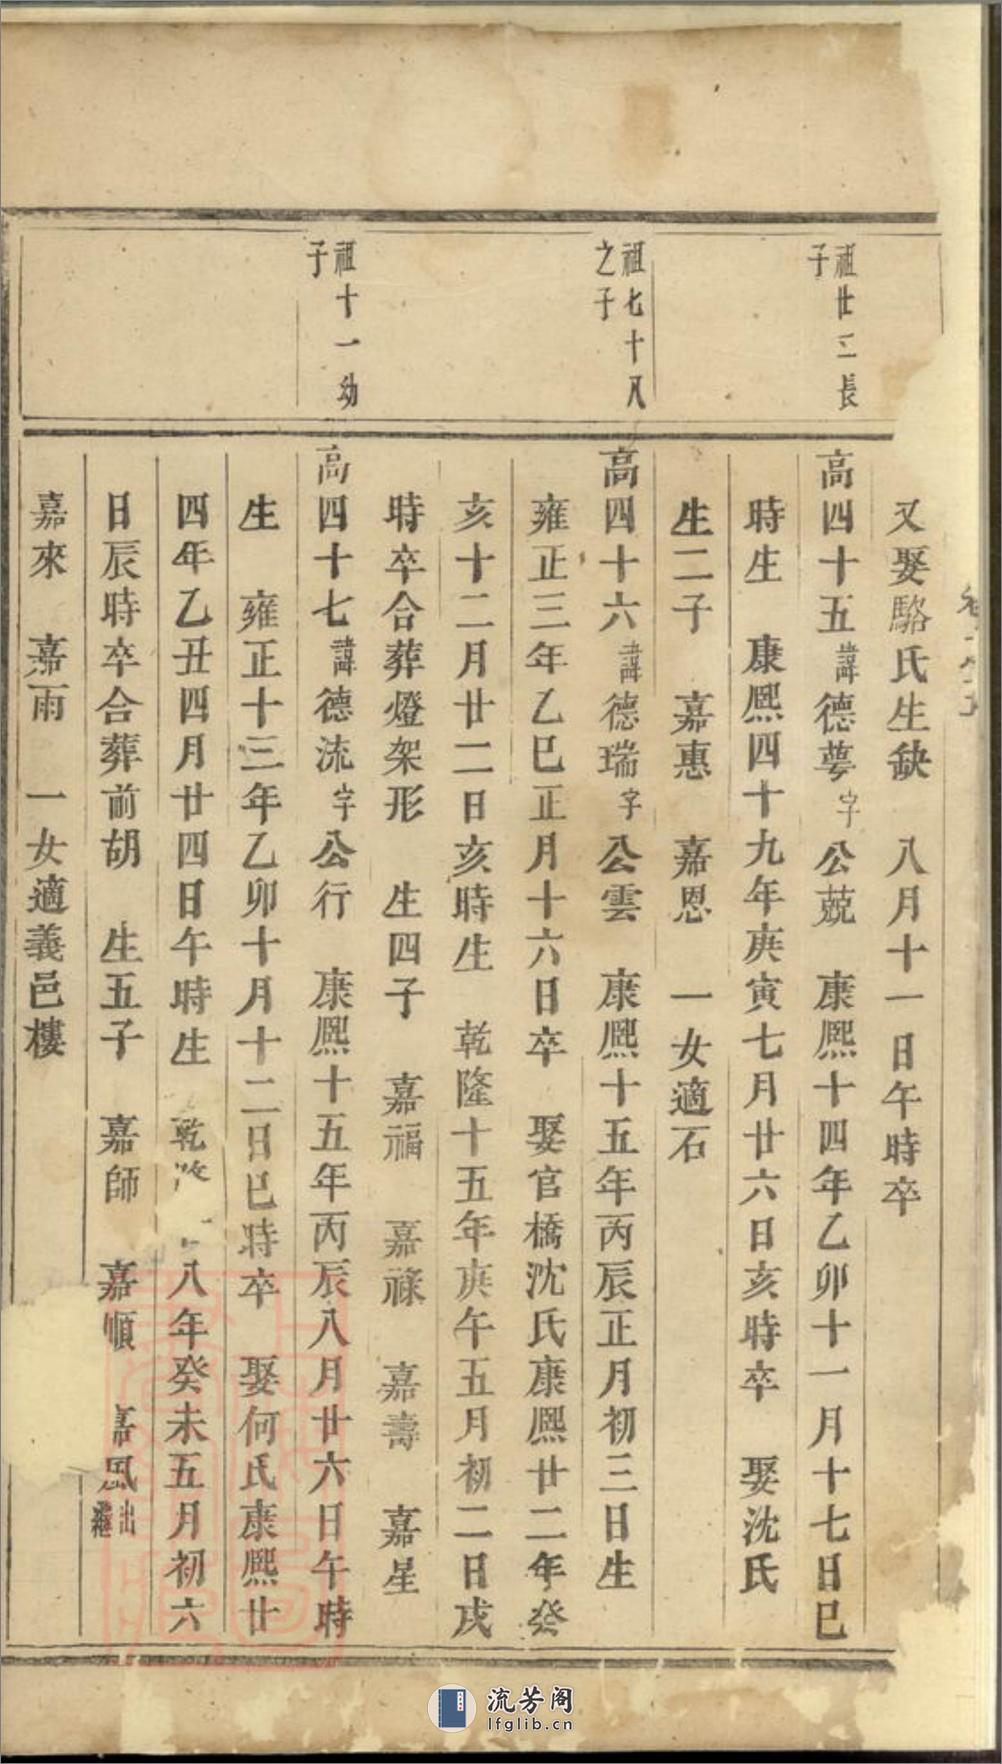 又娶駱氏生缺　八月十一日午時卒
祖廿二長
子
高四十五諱德萼字公兢　康熙十四年乙卯十一月十七日巳
時生　康熙四十九年庚寅七月廿六日亥時卒　娶沈氏
生二子　嘉惠　嘉恩　一女適石
祖七十八
之子
高四十六諱德瑞字公雲　康熙十五年丙辰正月初三日生
雍正三年乙巳正月十六日卒　娶官橋沈氏康熙廿二年癸
亥十二月廿二日亥時生　乾隆十五年庚午五月初二日戌
時卒合葬燈架形　生四子　嘉福　嘉祿　嘉壽　嘉星
祖十一幼
子
高四十七諱德流字公行　康熙十五年丙辰八月廿六日午時
生　雍正十三年乙卯十月十二日巳時卒　娶何氏康熙廿
四年乙丑四月廿四日午時生　乾八年癸未五月初六
日辰時卒合葬前胡　生五子　嘉師　嘉順　嘉風出繼
嘉來　嘉雨　一女適義邑樓
流芳阁
lfglib.cn